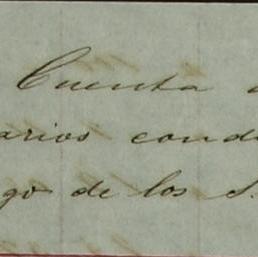 Cuenta
arios cond
go de los S.